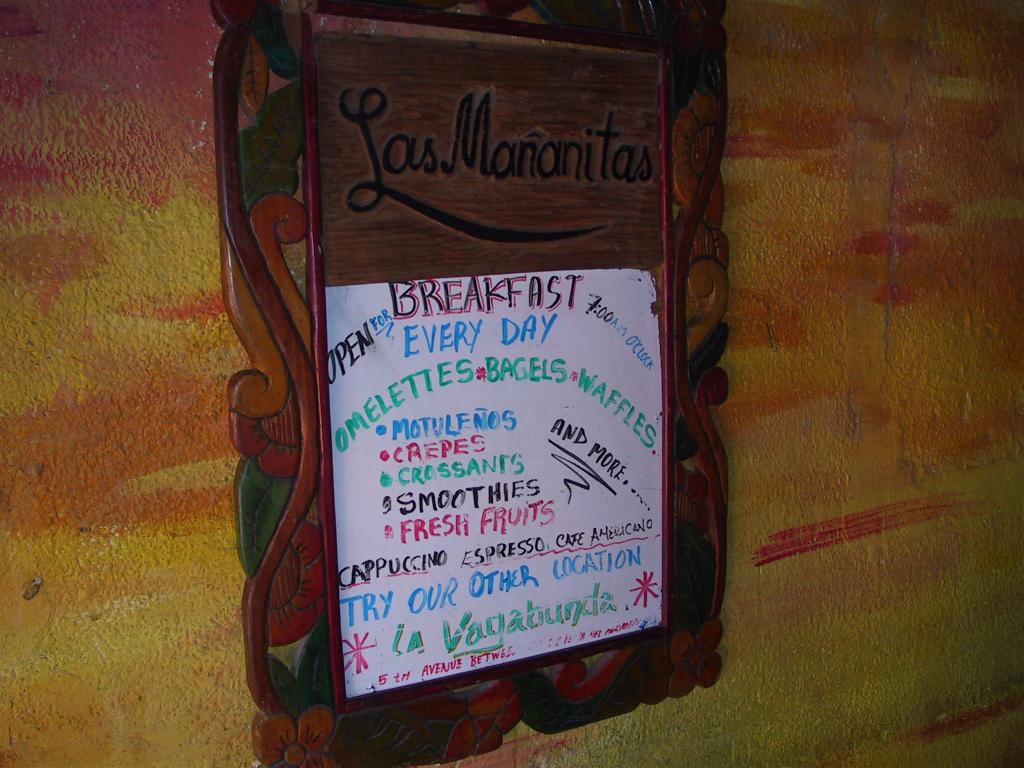 Las Mañanitas
OPEN FOR BREAKFAST 7:00 A.M. O'CLOCK
EVERY DAY
OMELETTES * BAGELS * WAFFLES.
• MOTULEÑOS
• CREPES
• CROSSANTS
• SMOOTHIES
• FRESH FRUITS
AND MORE....
CAPPUCCINO ESPRESSO, CAFE AMERICANO
TRY OUR OTHER LOCATION
* LA Vagabunda *
5 TH AVENUE